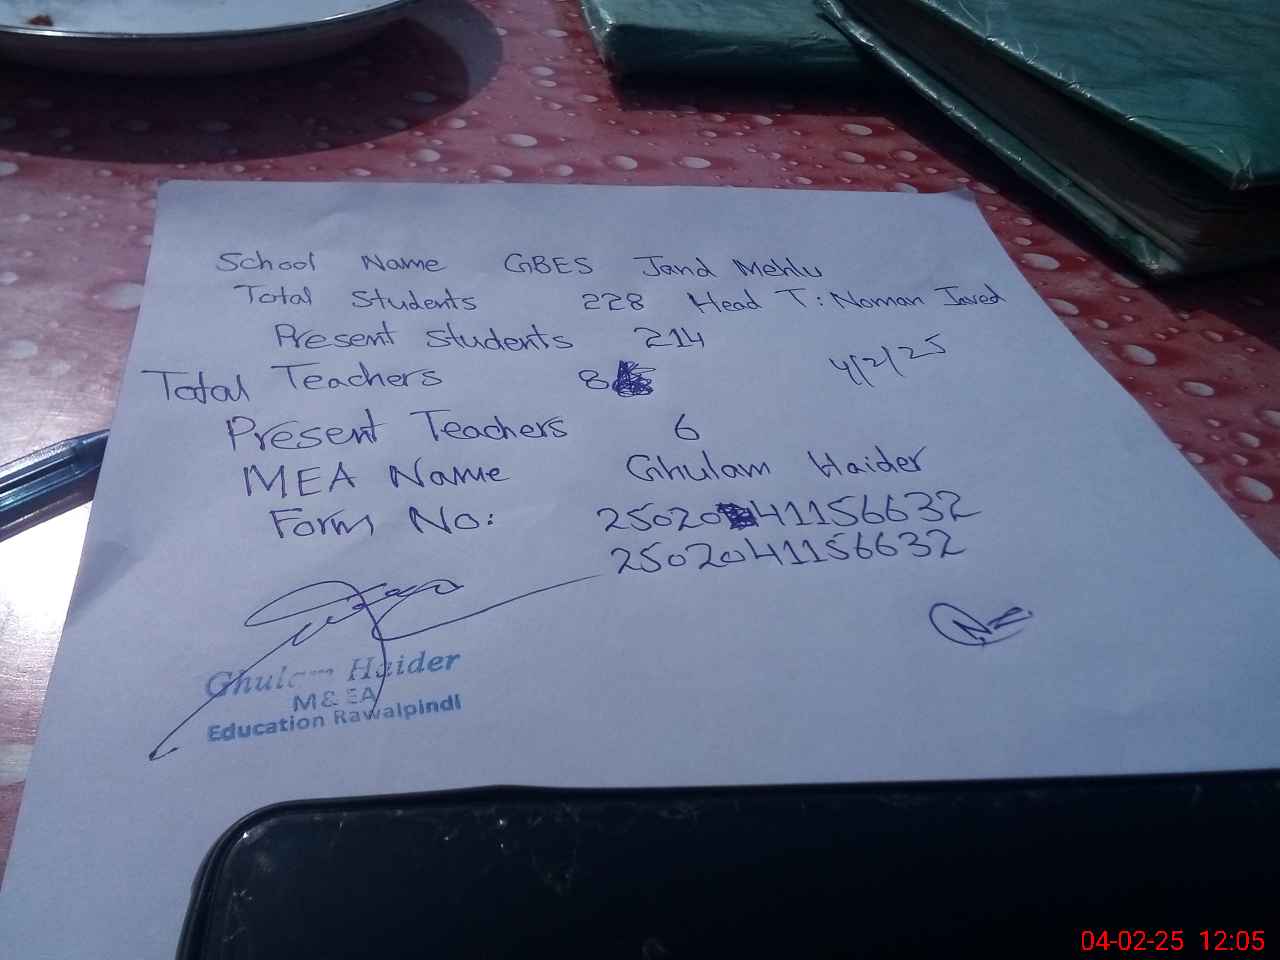 School Name GBES Jand Mehlu
Total Students 228 Head T: Noman Javed
Present Students 214
4/2/25
Total Teachers 8
Present Teachers 6
MEA Name Ghulam Haider
Form No: 25020 41156632
2502041156632
Ghulam Haider
M & EA
Education Rawalpindi
04-02-25 12:05